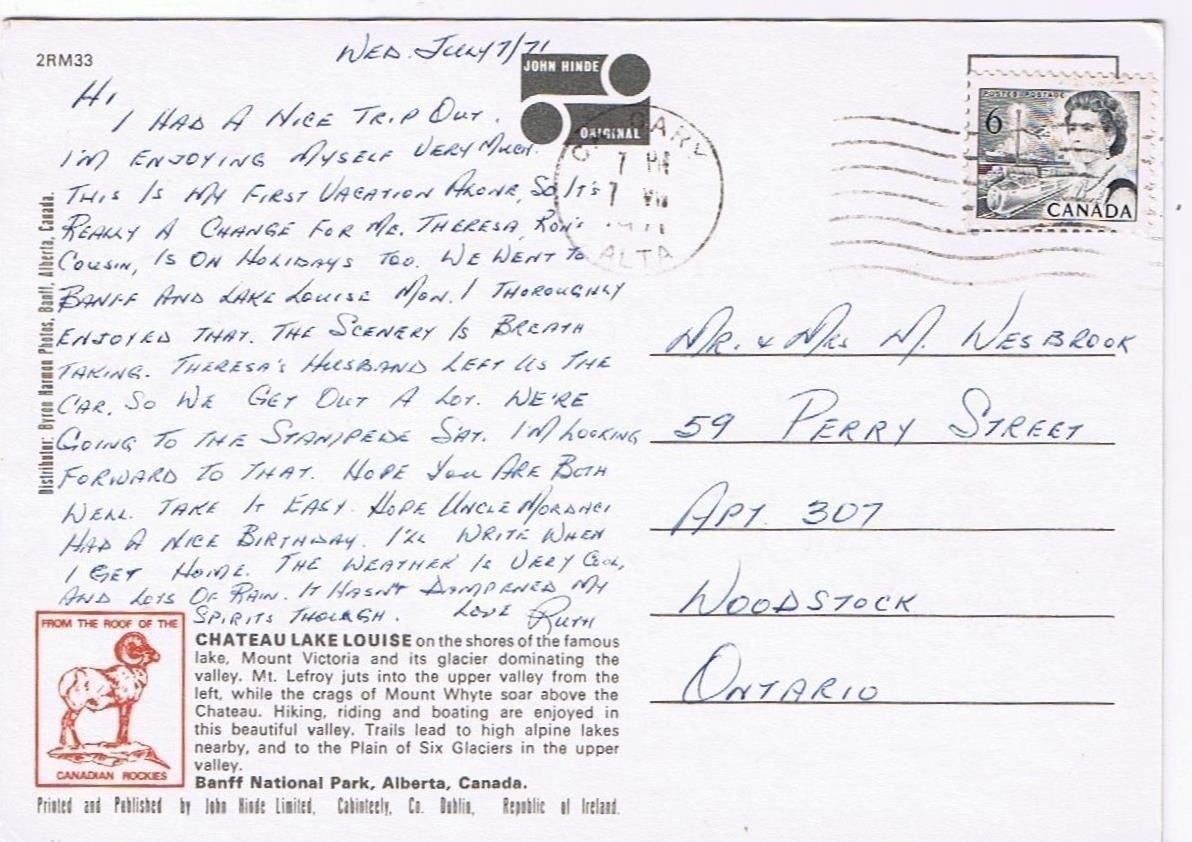 2RM33
WED. JULY 7/71
JOHN HINDE
ORIGINAL
HI,
I HAD A NICE TRIP OUT.
I'M ENJOYING MYSELF VERY MUCH.
THIS IS MY FIRST VACATION ALONE, SO IT'S
REALLY A CHANGE FOR ME. THERESA, RON'S
COUSIN, IS ON HOLIDAYS TOO. WE WENT TO
BANFF AND LAKE LOUISE MON. I THOROUGHLY
ENJOYED THAT. THE SCENERY IS BREATH
TAKING. THERESA'S HUSBAND LEFT US THE
CAR, SO WE GET OUT A LOT. WE'RE
GOING TO THE STAMPEDE SAT. I'M LOOKING
FORWARD TO THAT. HOPE YOU ARE BOTH
WELL. TAKE IT EASY. HOPE UNCLE MORDACI
HAD A NICE BIRTHDAY. I'LL WRITE WHEN
I GET HOME. THE WEATHER IS VERY COOL,
AND LOTS OF RAIN. IT HASN'T DAMPENED MY
SPIRITS THOUGH. LOVE RUTH
Distributor: Byron Harmon Photos, Banff, Alberta, Canada.
FROM THE ROOF OF THE
CANADIAN ROCKIES
CHATEAU LAKE LOUISE on the shores of the famous
lake, Mount Victoria and its glacier dominating the
valley. Mt. Lefroy juts into the upper valley from the
left, while the crags of Mount Whyte soar above the
Chateau. Hiking, riding and boating are enjoyed in
this beautiful valley. Trails lead to high alpine lakes
nearby, and to the Plain of Six Glaciers in the upper
valley.
Banff National Park, Alberta, Canada.
Printed and Published by John Hinde Limited, Cabinteely, Co. Dublin, Republic of Ireland.
7 PM
7 VII
ALTA
POSTES POSTAGE
6
CANADA
MR. & MRS M. WESBROOK
59 PERRY STREET
APT. 307
WOODSTOCK
ONTARIO